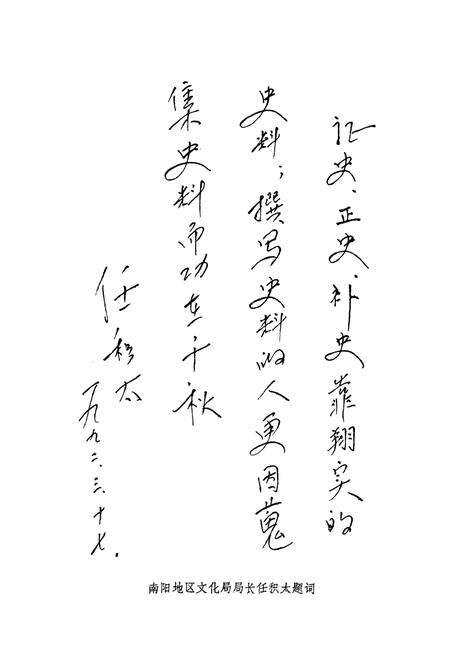 证史、正史、补史靠翔实的
史料；撰写史料的人更因蒐
集史料而功在千秋
任积太
一九九二.三.十七.
南阳地区文化局局长任积太题词